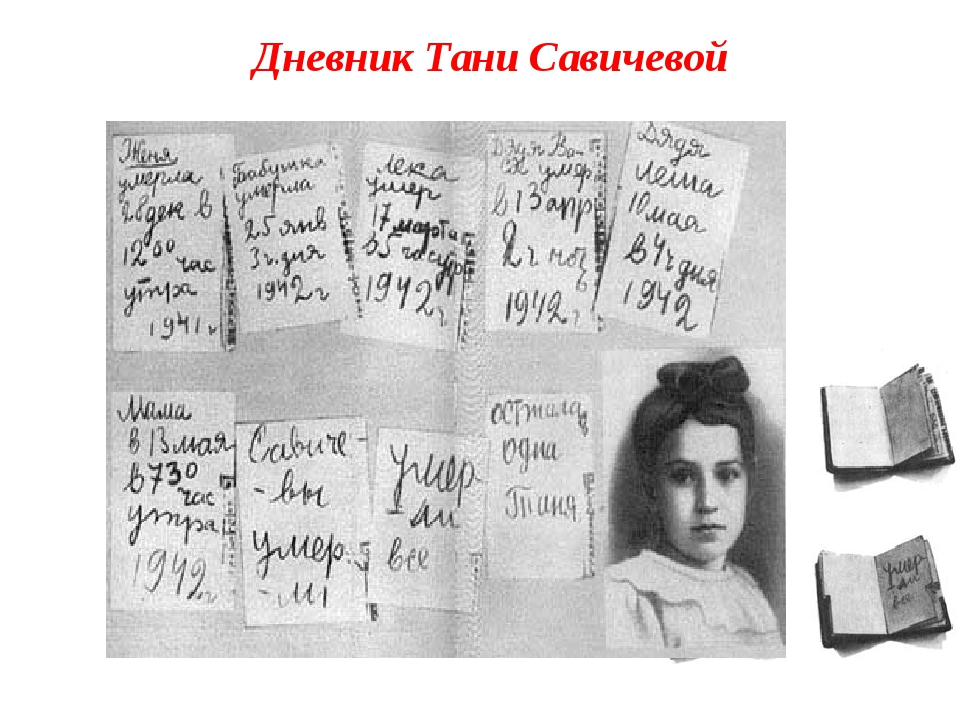 Дневник Тани Савичевой
Женя
умерла
28 дек в
12 00 час
утра
1941 г
Бабушка
умерла
25 янв
3 ч. дня
1942 г
Лека
умер
17 марта
в 5 час утр
1942 г
Дядя Ва-
ся умер
в 13 апр
2 ч ночь
1942 г
Дядя
Леша
10 мая
в 4 ч дня
1942
Мама
в 13 мая
в 7 30
час
утра
1942 г
Савиче-
-вы
умер-
-ли
умер
ли
все
осталась
одна
Таня
умер
ли
все